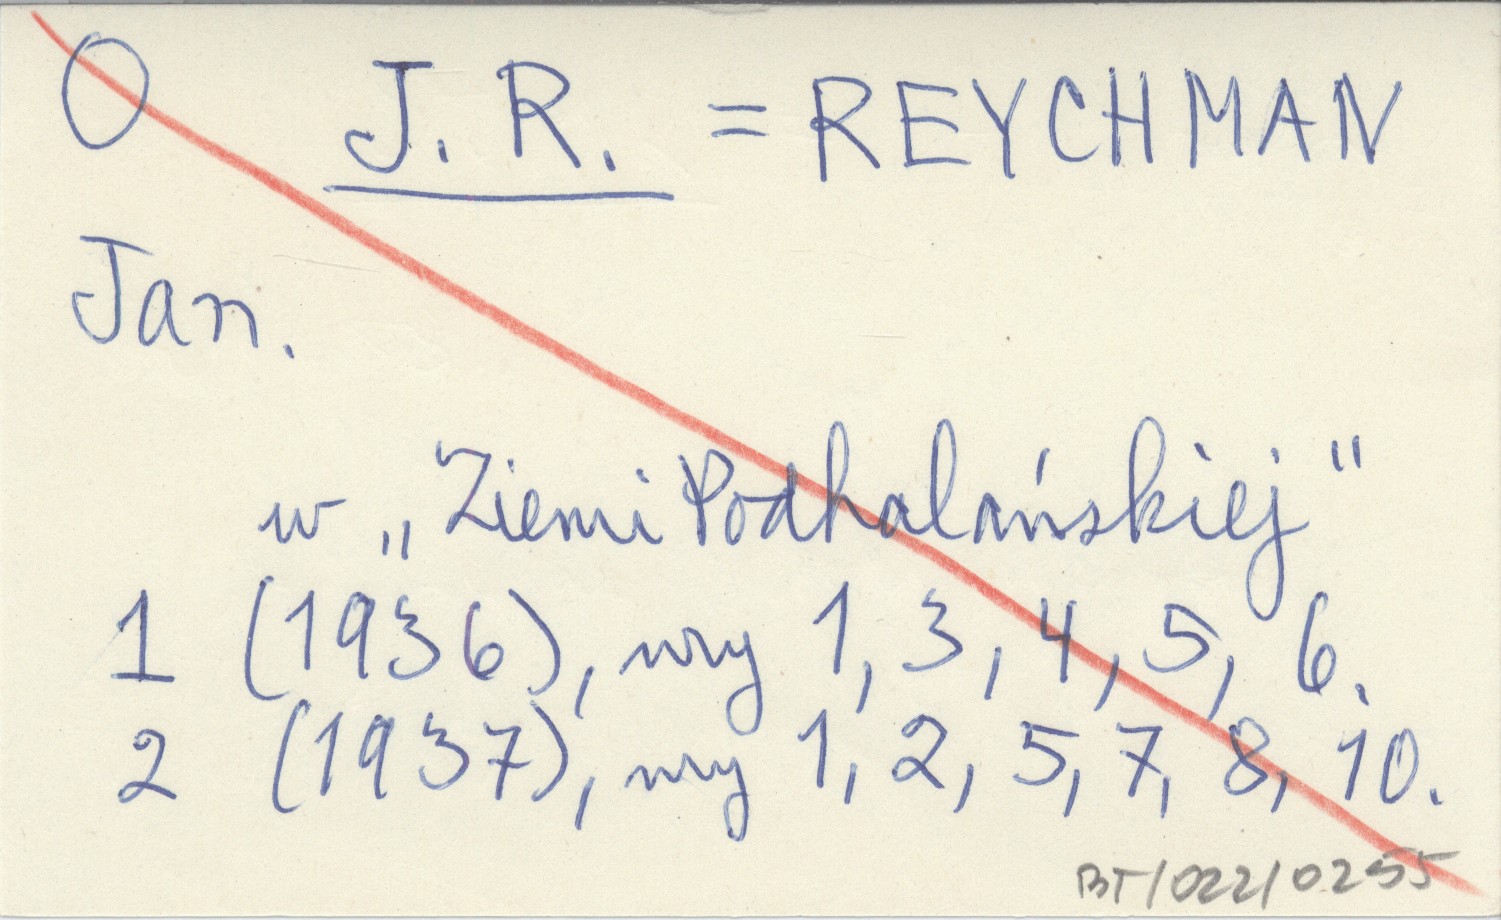 O J. R. = REYCHMAN
Jan.
w „Ziemi Podhalańskiej"
1 (1936), nry 1, 3, 4, 5, 6.
2 (1937), nry 1, 2, 5, 7, 8, 10.
BT/022/0255